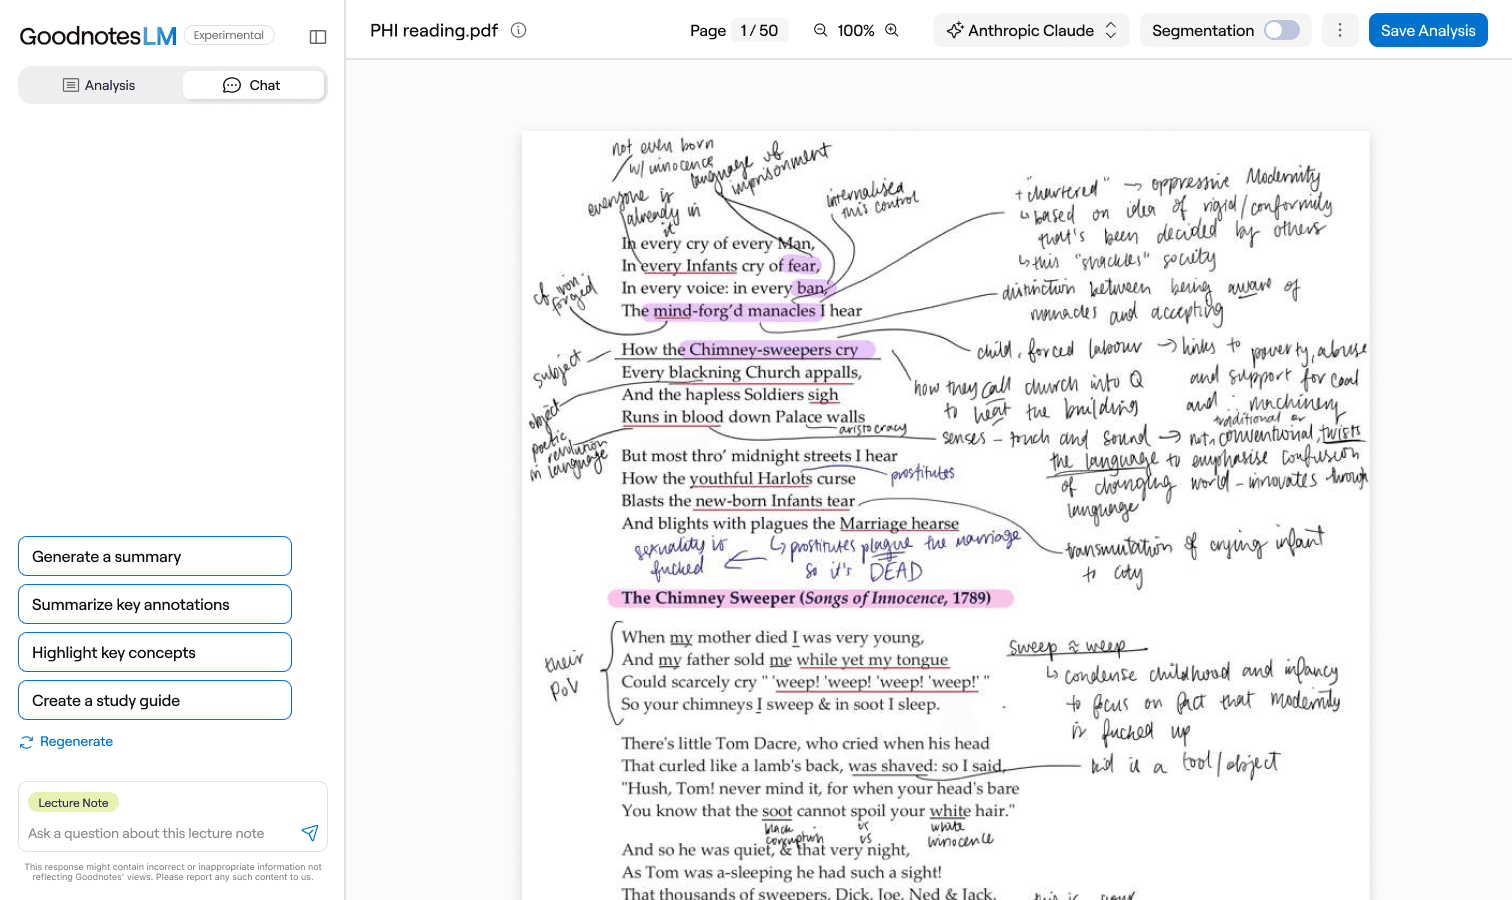 GoodnotesLM Experimental
Analysis
Chat
Generate a summary
Summarize key annotations
Highlight key concepts
Create a study guide
Regenerate
Lecture Note
Ask a question about this lecture note
This response might contain incorrect or inappropriate information not
reflecting Goodnotes' views. Please report any such content to us.
PHI reading.pdf
Page 1 / 50
100%
Anthropic Claude
Segmentation
Save Analysis
not even born
w/ innocence
language of
imprisonment
everyone is
already in
it
internalised
this control
In every cry of every Man,
In every Infants cry of fear,
In every voice: in every ban,
The mind-forg'd manacles I hear
cf iron
forged
+ "chartered" → oppressive Modernity
↳ based on idea of rigid/conformity
that's been decided by others
↳ this "shackles" society
distinction between being aware of
manacles and accepting
How the Chimney-sweepers cry
Every blackning Church appalls,
And the hapless Soldiers sigh
Runs in blood down Palace walls
subject
object
poetic
revolution
in language
aristocracy
child, forced labour → links to poverty, abuse
and support for coal
and machinery
how they call church into Q
to heat the building
senses – touch and sound → not conventional, twists
traditional or
the language to emphasise confusion
of changing world – innovates through
language
But most thro' midnight streets I hear
How the youthful Harlots curse
Blasts the new-born Infants tear
And blights with plagues the Marriage hearse
prostitutes
sexuality is
fucked
↳ prostitutes plague the marriage
so it's DEAD
transmutation of crying infant
to city
The Chimney Sweeper (Songs of Innocence, 1789)
When my mother died I was very young,
And my father sold me while yet my tongue
Could scarcely cry " 'weep! 'weep! 'weep! 'weep!' "
So your chimneys I sweep & in soot I sleep.
their
PoV
sweep ≈ weep
↳ condense childhood and infancy
to focus on fact that modernity
is fucked up
There's little Tom Dacre, who cried when his head
That curled like a lamb's back, was shaved: so I said,
"Hush, Tom! never mind it, for when your head's bare
You know that the soot cannot spoil your white hair."
kid is a tool/object
black
corruption
vs
vs
white
innocence
And so he was quiet, & that very night,
As Tom was a-sleeping he had such a sight!
That thousands of sweepers, Dick, Joe, Ned & Jack,
this is